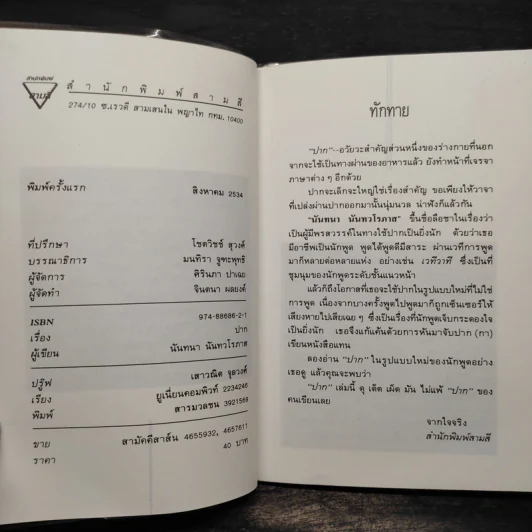 สำนักพิมพ์
สามสี
สำนักพิมพ์สามสี
274/10 ซ.เรวดี สามเสนใน พญาไท กทม. 10400
พิมพ์ครั้งแรก สิงหาคม 2534
ที่ปรึกษา โชตวิชช์ สุวงศ์
บรรณาธิการ มนทิรา จูฑะพุทธิ
ผู้จัดการ ศิรินภา ปาเฉย
ผู้จัดทำ จินตนา ผลยงค์
ISBN 974-88686-2-1
เรื่อง ปาก
ผู้เขียน นันทนา นันทวโรภาส
ปรู๊ฟ เสาวณิต จุลวงศ์
เรียง ยูเนี่ยนคอมพิวท์ 2234246
พิมพ์ สารมวลชน 3921569
ขาย สามัคคีสาส์น 4655932, 4657611
ราคา 40 บาท
ทักทาย
"ปาก"--อวัยวะสำคัญส่วนหนึ่งของร่างกายที่นอก
จากจะใช้เป็นทางผ่านของอาหารแล้ว ยังทำหน้าที่เจรจา
ภาษาต่าง ๆ อีกด้วย
ปากจะเล็กจะใหญ่ใช่เรื่องสำคัญ ขอเพียงให้วาจา
ที่เปล่งผ่านปากออกมานั้นนุ่มนวล น่าฟังก็แล้วกัน
"นันทนา นันทวโรภาส" ขึ้นชื่อลือชาในเรื่องว่า
เป็นผู้มีพรสวรรค์ในทางใช้ปากเป็นยิ่งนัก ด้วยว่าเธอ
มีอาชีพเป็นนักพูด พูดได้พูดดีมีสาระ ผ่านเวทีการพูด
มาก็หลายต่อหลายแห่ง อย่างเช่น เวทีวาที ซึ่งเป็นที่
ชุมนุมของนักพูดระดับชั้นแนวหน้า
แล้วก็ถึงโอกาสที่เธอจะใช้ปากในรูปแบบใหม่ที่ไม่ใช่
การพูด เนื่องจากบางครั้งพูดไปพูดมาก็ถูกเซ็นเซอร์ให้
เสียงหายไปเสียเฉย ๆ ซึ่งเป็นเรื่องที่นักพูดเจ็บกระดองใจ
เป็นยิ่งนัก เธอจึงแก้แค้นด้วยการหันมาจับปาก (กา)
เขียนหนังสือแทน
ลองอ่าน "ปาก" ในรูปแบบใหม่ของนักพูดอย่าง
เธอดู แล้วคุณจะพบว่า
"ปาก" เล่มนี้ ดุ เด็ด เผ็ด มัน ไม่แพ้ "ปาก" ของ
คนเขียนเลย
จากใจจริง
สำนักพิมพ์สามสี